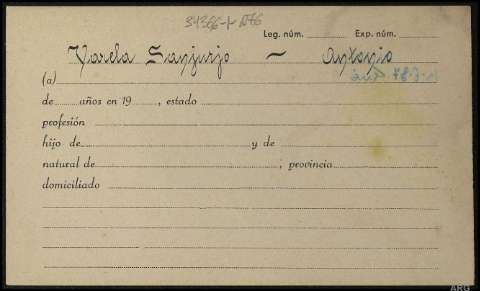 Leg. núm. Exp. núm.
Varela Sanjurjo — Antonio
(a)
de años en 19 , estado
profesión
hijo de y de
natural de ; provincia
domiciliado
ARG